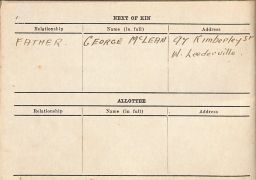 NEXT OF KIN
Relationship Name (In full) Address
FATHER. GEORGE McLEAN 97 Kimberley St
W. Leederville.
ALLOTTEE
Relationship Name (In full) Address